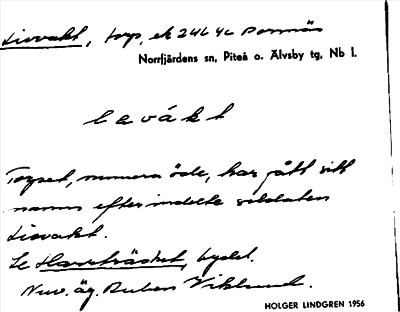 Livvakt, torp, ek 24G4c Pormnäs
Norrfjärdens sn, Piteå o. Älvsby tg, Nb l.
levákt
Torpet, numera öde, har fått sitt
namn efter indelte soldaten
Livvakt.
Se Harrträsket, bydel.
Nuv. äg. Ruben Viklund.
HOLGER LINDGREN 1956